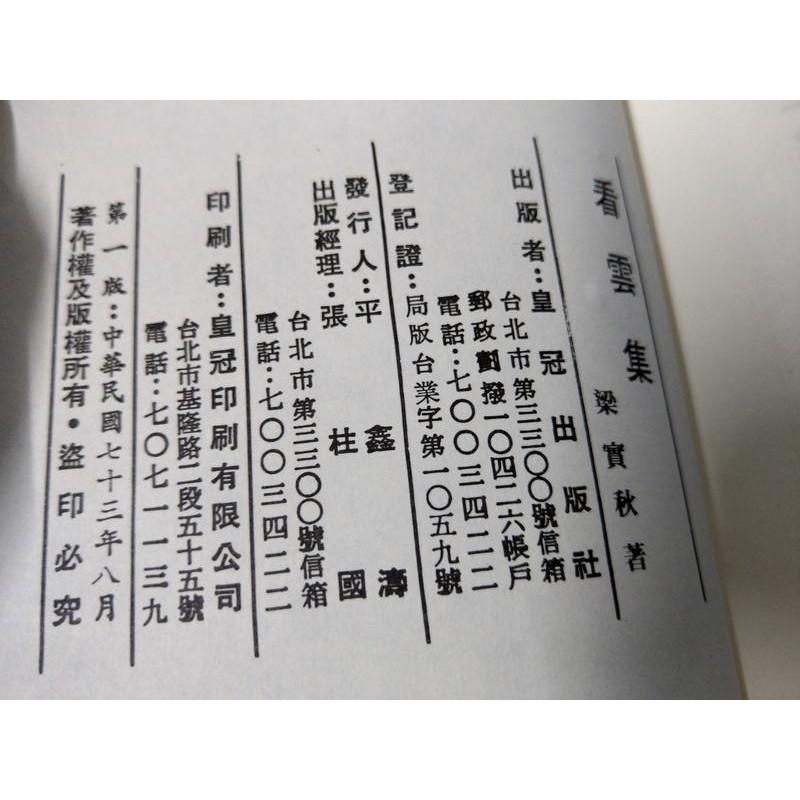 看雲集
梁實秋 著
出版者：皇冠出版社
台北市第三三〇〇號信箱
郵政劃撥一〇四二六帳戶
電話：七〇〇三四二二
登記證：局版台業字第一〇五九號
發行人：平鑫濤
出版經理：張柱國
台北市第三三〇〇號信箱
電話：七〇〇三四二二
印刷者：皇冠印刷有限公司
台北市基隆路二段五十五號
電話：七〇七一一三九
第一版：中華民國七十三年八月
著作權及版權所有•盜印必究